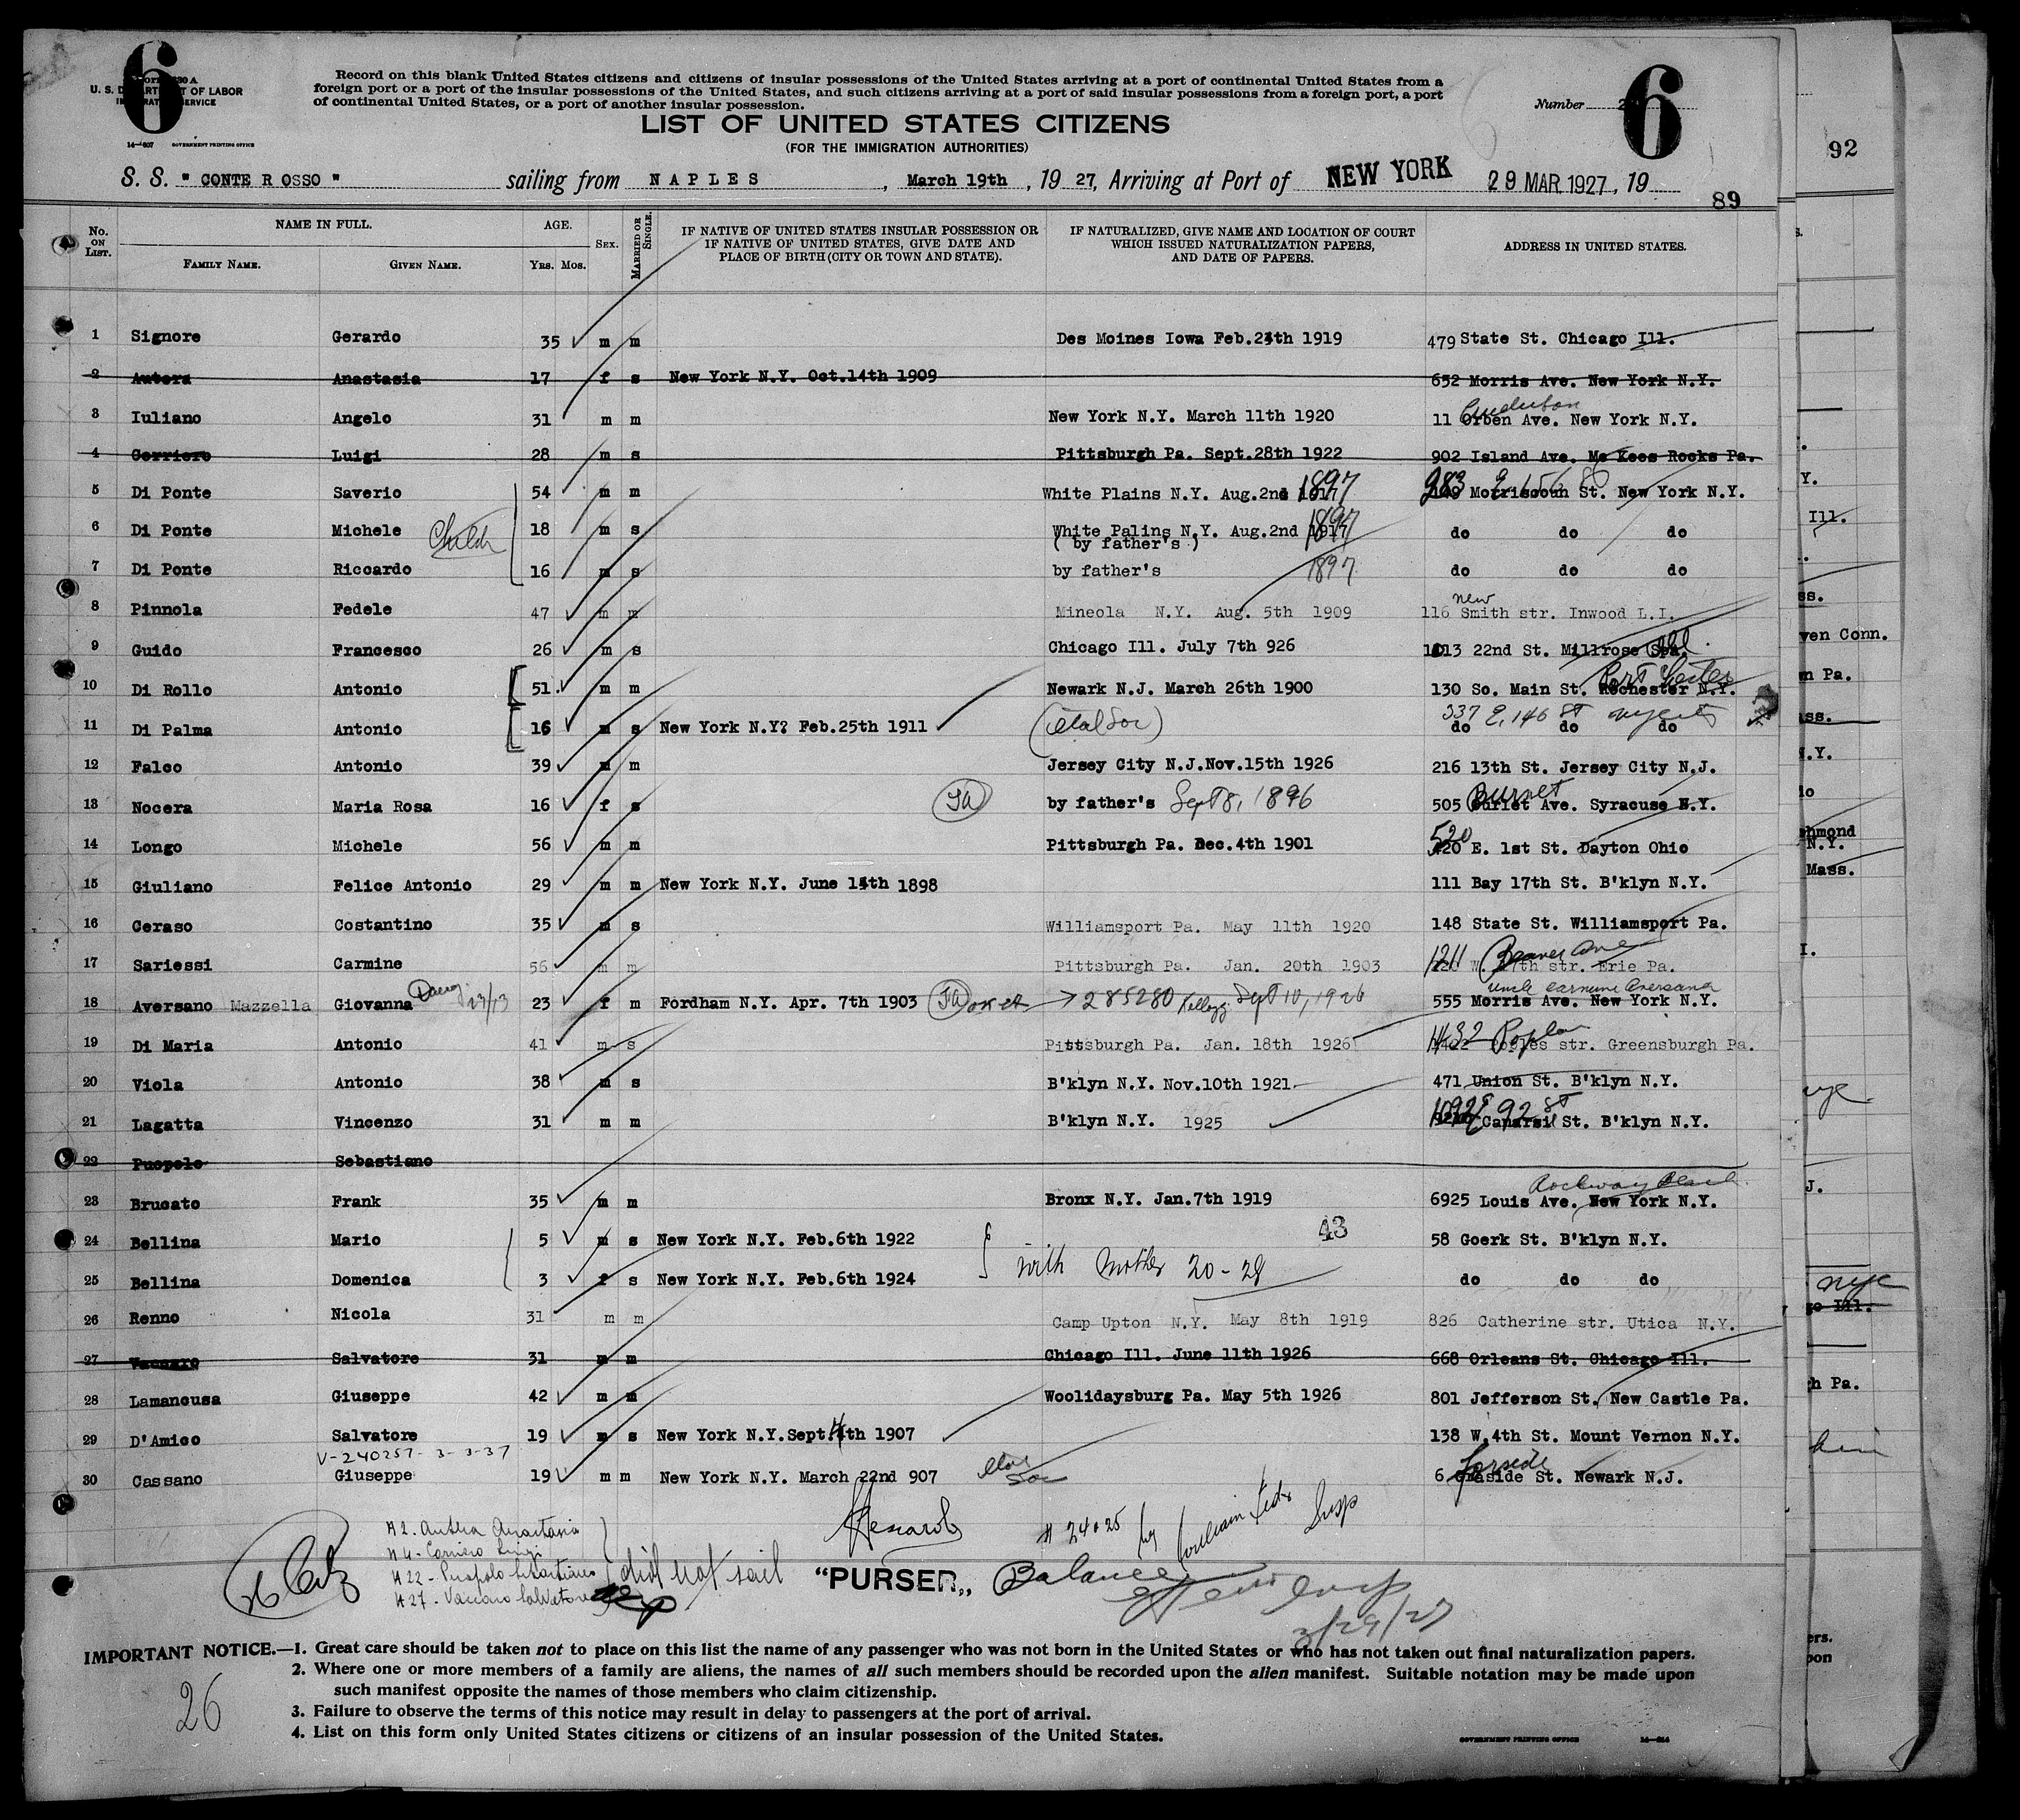 6
6
U. S. DEPARTMENT OF LABOR
IMMIGRATION SERVICE
14—607 GOVERNMENT PRINTING OFFICE
Record on this blank United States citizens and citizens of insular possessions of the United States arriving at a port of continental United States from a
foreign port or a port of the insular possessions of the United States, and such citizens arriving at a port of said insular possessions from a foreign port, a port
of continental United States, or a port of another insular possession.
Number
LIST OF UNITED STATES CITIZENS
(FOR THE IMMIGRATION AUTHORITIES)
92
S. S. " CONTE R OSSO " sailing from NAPLES, March 19th, 19 27, Arriving at Port of NEW YORK 29 MAR 1927, 19
89
No. ON LIST. NAME IN FULL. AGE. SEX. MARRIED OR SINGLE. IF NATIVE OF UNITED STATES INSULAR POSSESSION OR IF NATIVE OF UNITED STATES, GIVE DATE AND PLACE OF BIRTH (CITY OR TOWN AND STATE). IF NATURALIZED, GIVE NAME AND LOCATION OF COURT WHICH ISSUED NATURALIZATION PAPERS, AND DATE OF PAPERS. ADDRESS IN UNITED STATES.
FAMILY NAME. GIVEN NAME. YRS. MOS.
1 Signore Gerardo 35 m m Des Moines Iowa Feb.24th 1919 479 State St. Chicago Ill.
2 Autera Anastasia 17 f s New York N.Y. Oct.14th 1909 652 Morris Ave. New York N.Y.
3 Iuliano Angelo 31 m m New York N.Y. March 11th 1920 11 Orben Ave. New York N.Y.
4 Corriere Luigi 28 m s Pittsburgh Pa. Sept.28th 1922 902 Island Ave. Mc Kees Rocks Pa.
5 Di Ponte Saverio 54 m m White Plains N.Y. Aug.2nd 1897 283 E 156 St Morriscoun St. New York N.Y.
6 Di Ponte Michele Child 18 m s White Palins N.Y. Aug.2nd 1917 1897 do do do
( by father's )
7 Di Ponte Riccardo 16 m s by father's 1897 do do do
8 Pinnola Fedele 47 m m Mineola N.Y. Aug. 5th 1909 116 new Smith str. Inwood L.I.
9 Guido Francesco 26 m s Chicago Ill. July 7th 926 1013 22nd St. Millrose Spa.
10 Di Rollo Antonio 51 m m Newark N.J. March 26th 1900 130 So. Main St. Rochester N.Y. Port Chester
11 Di Palma Antonio 16 m s New York N.Y? Feb.25th 1911 337 E. 146 St do do do
12 Falco Antonio 39 m m Jersey City N.J.Nov.15th 1926 216 13th St. Jersey City N.J.
13 Nocera Maria Rosa 16 f s by father's Sept 8, 1896 505 Burnet Ave. Syracuse N.Y.
14 Longo Michele 56 m m Pittsburgh Pa. Dec.4th 1901 520 E. 1st St. Dayton Ohio
15 Giuliano Felice Antonio 29 m m New York N.Y. June 14th 1898 111 Bay 17th St. B'klyn N.Y.
16 Ceraso Costantino 35 m s Williamsport Pa. May 11th 1920 148 State St. Williamsport Pa.
17 Sariessi Carmine 56 m m Pittsburgh Pa. Jan. 20th 1903 1211 Beaver Ave W. 17th str. Erie Pa.
18 Aversano Mazzella Giovanna 23 f m Fordham N.Y. Apr. 7th 1903 285280 Kellogg Sept 10, 1926 555 Morris Ave. New York N.Y.
uncle Carmine Aversano
19 Di Maria Antonio 41 m s Pittsburgh Pa. Jan. 18th 1926 1432 Poplar str. Greensburgh Pa.
20 Viola Antonio 38 m s B'klyn N.Y. Nov.10th 1921 471 Union St. B'klyn N.Y.
21 Lagatta Vincenzo 31 m m B'klyn N.Y. 1925 1092 E 92 St Canarsi St. B'klyn N.Y.
22 Puopolo Sebastiano
23 Brucato Frank 35 m m Bronx N.Y. Jan.7th 1919 6925 Louis Ave. New York N.Y. Rockway Beach
24 Bellina Mario 5 m s New York N.Y. Feb.6th 1922 43 58 Goerk St. B'klyn N.Y.
25 Bellina Domenica 3 f s New York N.Y. Feb.6th 1924 with Mother 20-28 do do do
26 Renno Nicola 31 m m Camp Upton N.Y. May 8th 1919 826 Catherine str. Utica N.Y.
27 Vaccaro Salvatore 31 m m Chicago Ill. June 11th 1926 668 Orleans St. Chicago Ill.
28 Lamancusa Giuseppe 42 m m Woolidaysburg Pa. May 5th 1926 801 Jefferson St. New Castle Pa.
29 D'Amico Salvatore 19 m s New York N.Y.Sept.4th 1907 138 W.4th St. Mount Vernon N.Y.
V-240257- 3-3-37
30 Cassano Giuseppe 19 m m New York N.Y. March 22nd 907 6 Garside St. Newark N.J.
# 2. Autera Anastasia
# 4. Corriero Luigi
# 22 - Puopolo Sebastiano
# 27 - Vaccaro Salvatore
did not sail
"PURSER„
# 24 & 25 by
Balance
3/29/27
IMPORTANT NOTICE.—1. Great care should be taken not to place on this list the name of any passenger who was not born in the United States or who has not taken out final naturalization papers.
2. Where one or more members of a family are aliens, the names of all such members should be recorded upon the alien manifest. Suitable notation may be made upon
such manifest opposite the names of those members who claim citizenship.
3. Failure to observe the terms of this notice may result in delay to passengers at the port of arrival.
4. List on this form only United States citizens or citizens of an insular possession of the United States.
26
GOVERNMENT PRINTING OFFICE 14—614